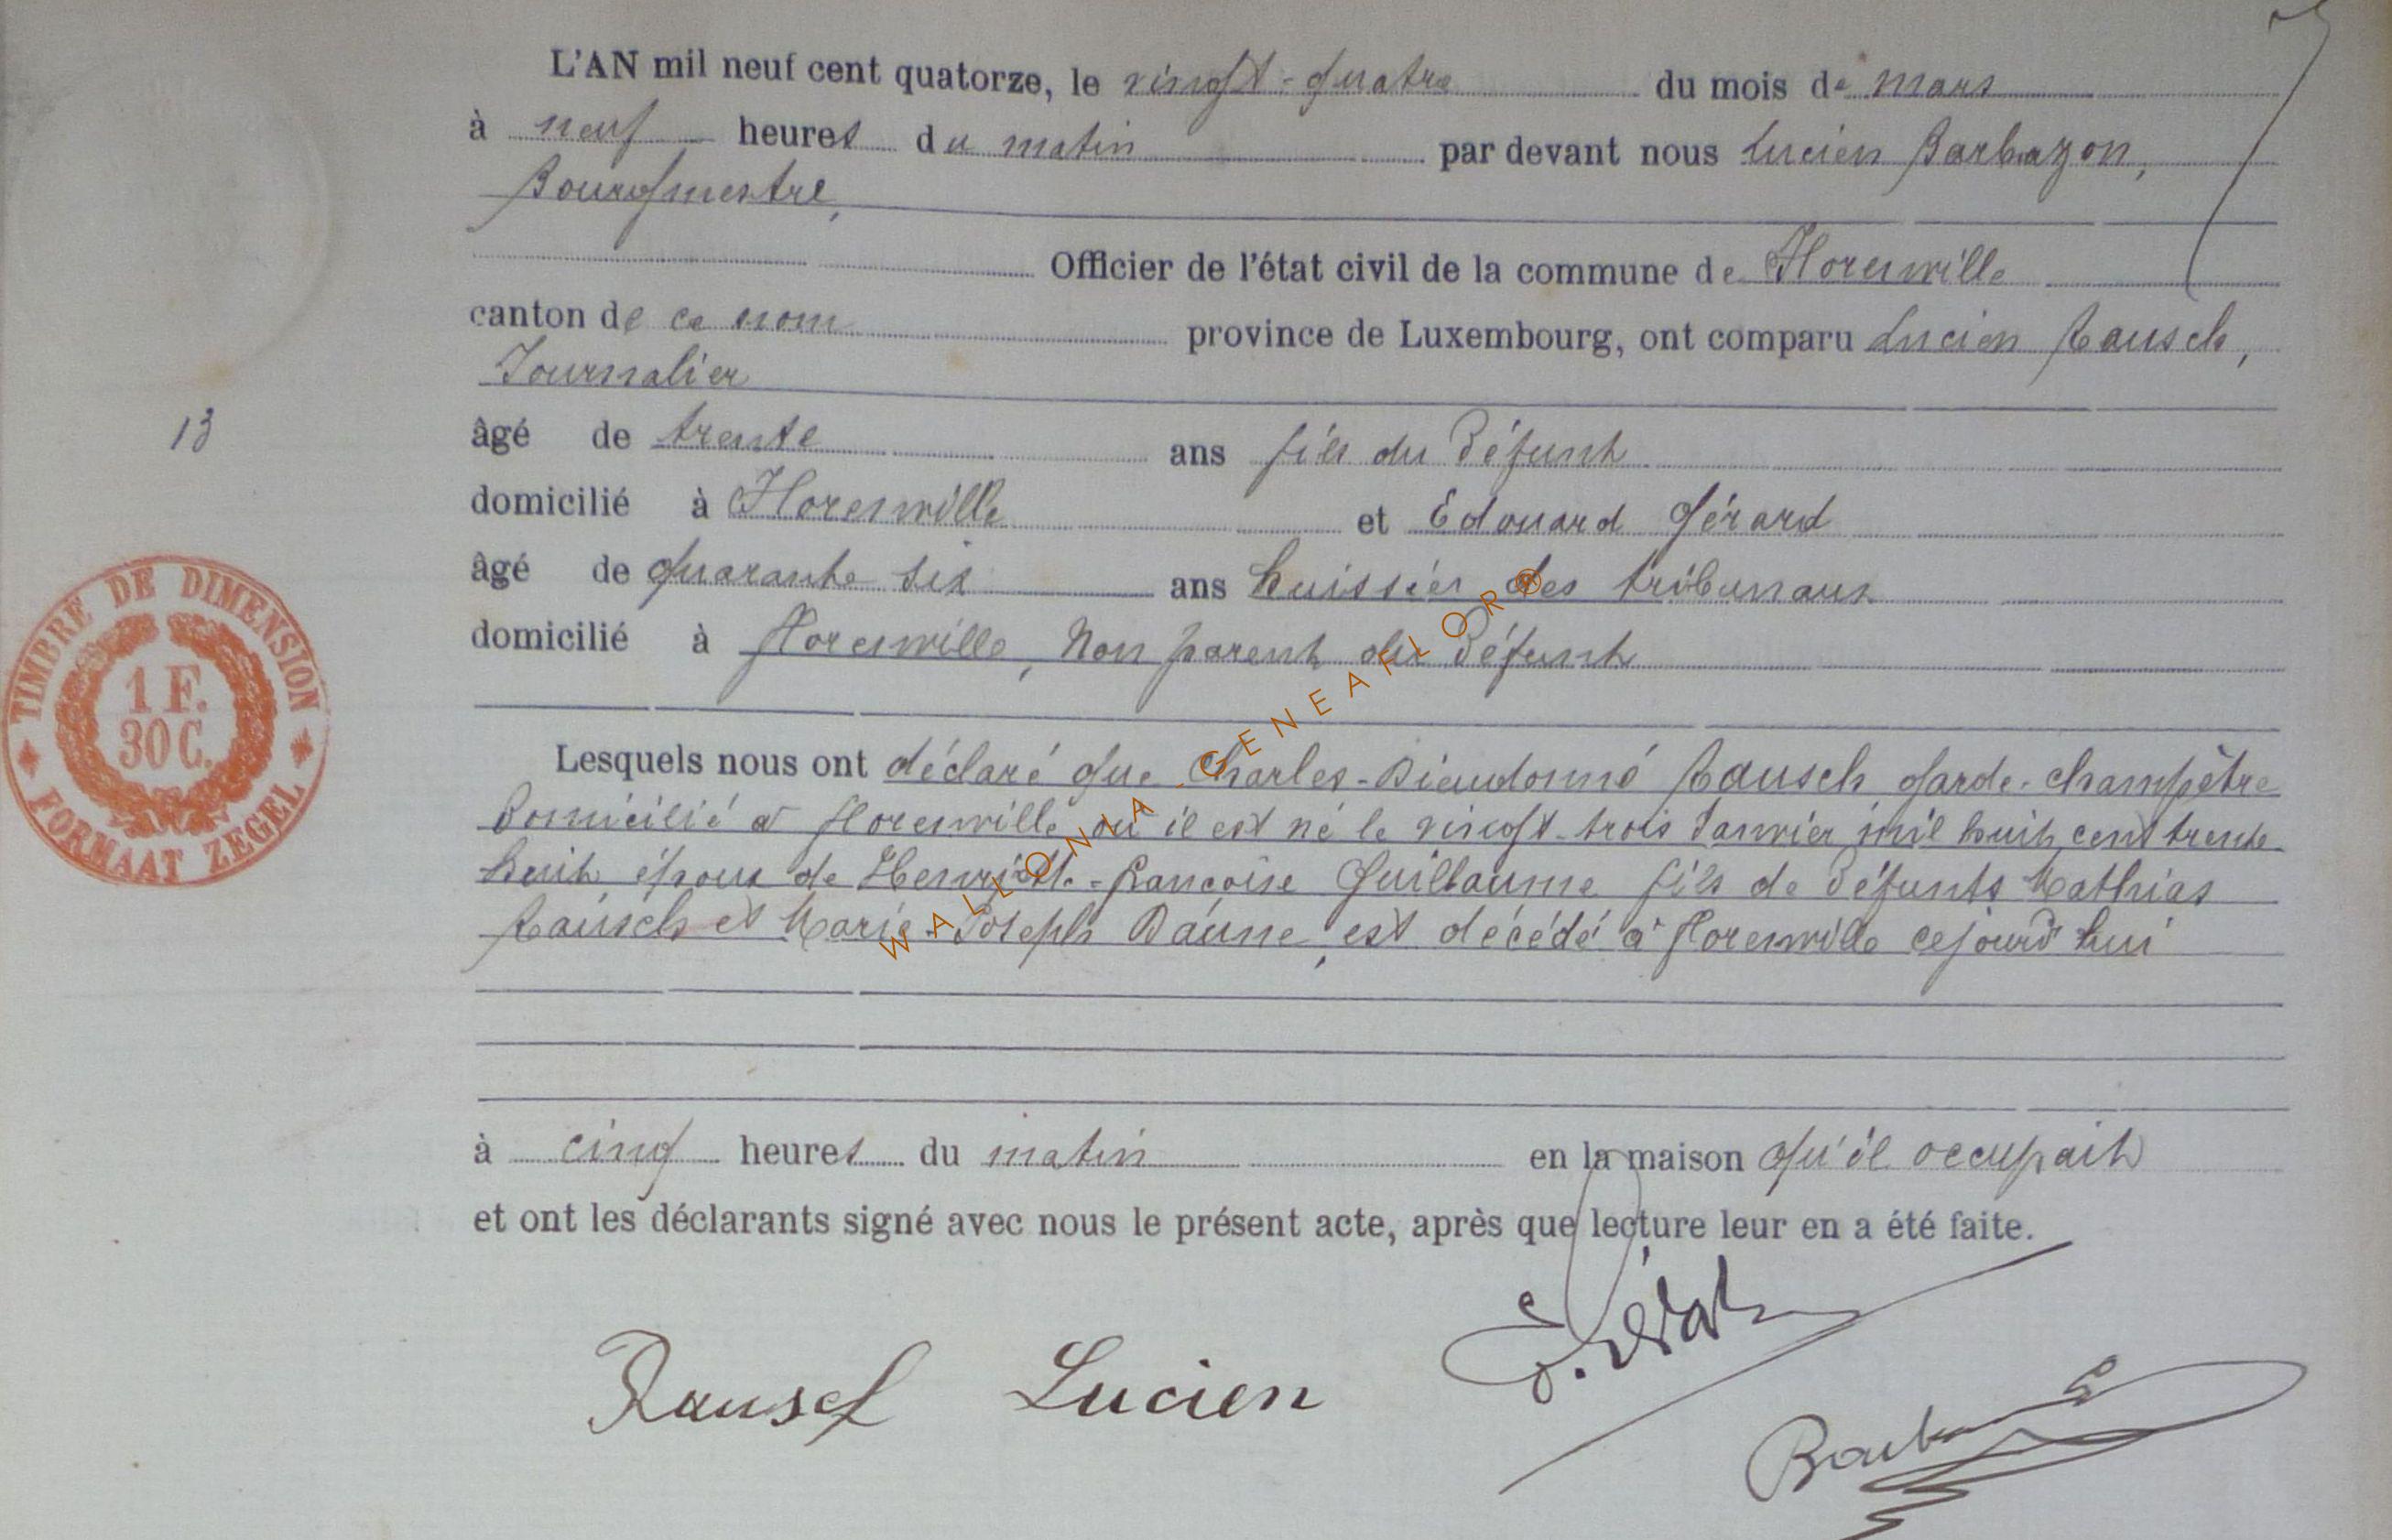 L'AN mil neuf cent quatorze, le vingt-quatre du mois de mars
à neuf heures du matin par devant nous Lucien Barbazon,
Bourgmestre,
Officier de l'état civil de la commune de Florenville
canton de ce nom province de Luxembourg, ont comparu Lucien Rausch,
Journalier
13
âgé de trente ans fils du Défunt
domicilié à Florenville et Edouard Gérard
âgé de quarante six ans huissier des tribunaux
domicilié à Florenville, Non parent du Défunt
TIMBRE DE DIMENSION
1 F.
30 C.
FORMAAT ZEGEL
Lesquels nous ont déclaré que Charles-Dieudonné Rausch, garde-champêtre
Domicilié à Florenville où il est né le vingt-trois Janvier mil huit cent trente
huit, époux de Henriette-Françoise Guillaume fils de Défunts Mathias
Rausch et Marie-Joseph Daune, est décédé à Florenville cejourd'hui
à cinq heures du matin en la maison qu'il occupait
et ont les déclarants signé avec nous le présent acte, après que lecture leur en a été faite.
Rausch Lucien
E. Gérard
Barbazon
WALLONIA-GENEAFLOR®